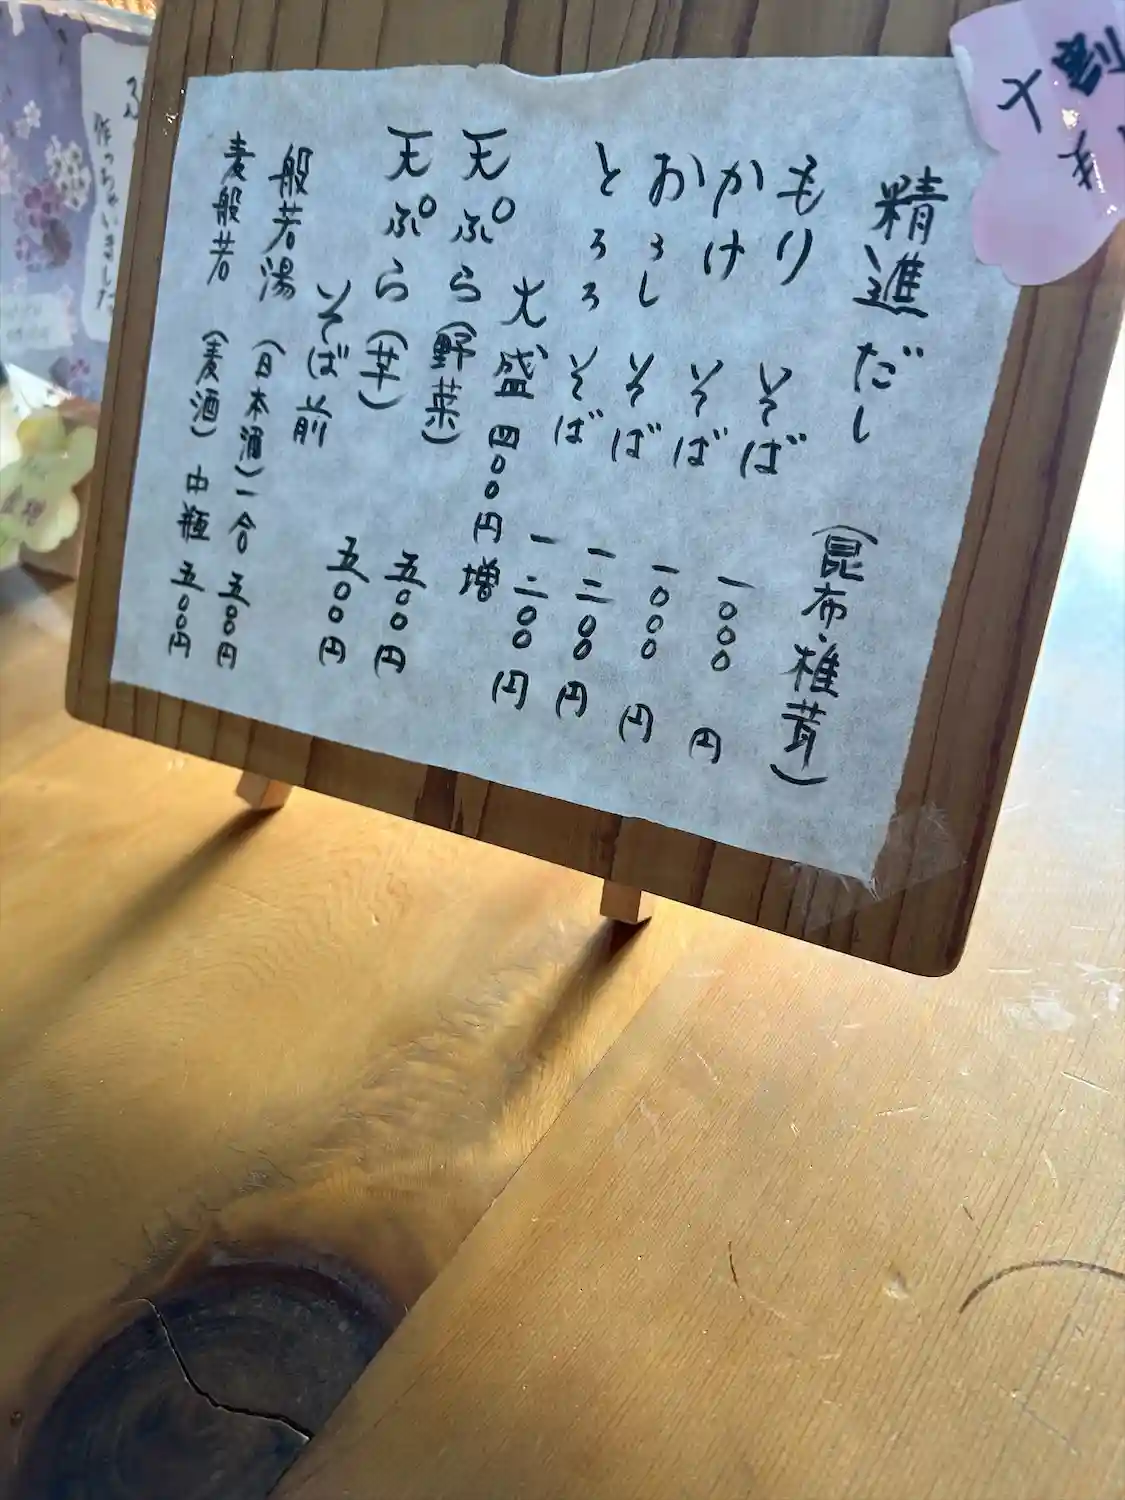 精進だし(昆布・椎茸)
もりそば 一〇〇〇円
かけそば 一〇〇〇円
おろしそば 一二〇〇円
とろろそば 一二〇〇円
大盛 四〇〇円増
天ぷら(野菜) 五〇〇円
天ぷら(芋) 五〇〇円
そば前
般若湯(日本酒)一合 五〇〇円
麦般若(麦酒)中瓶 五〇〇円
十割
作っちゃいました